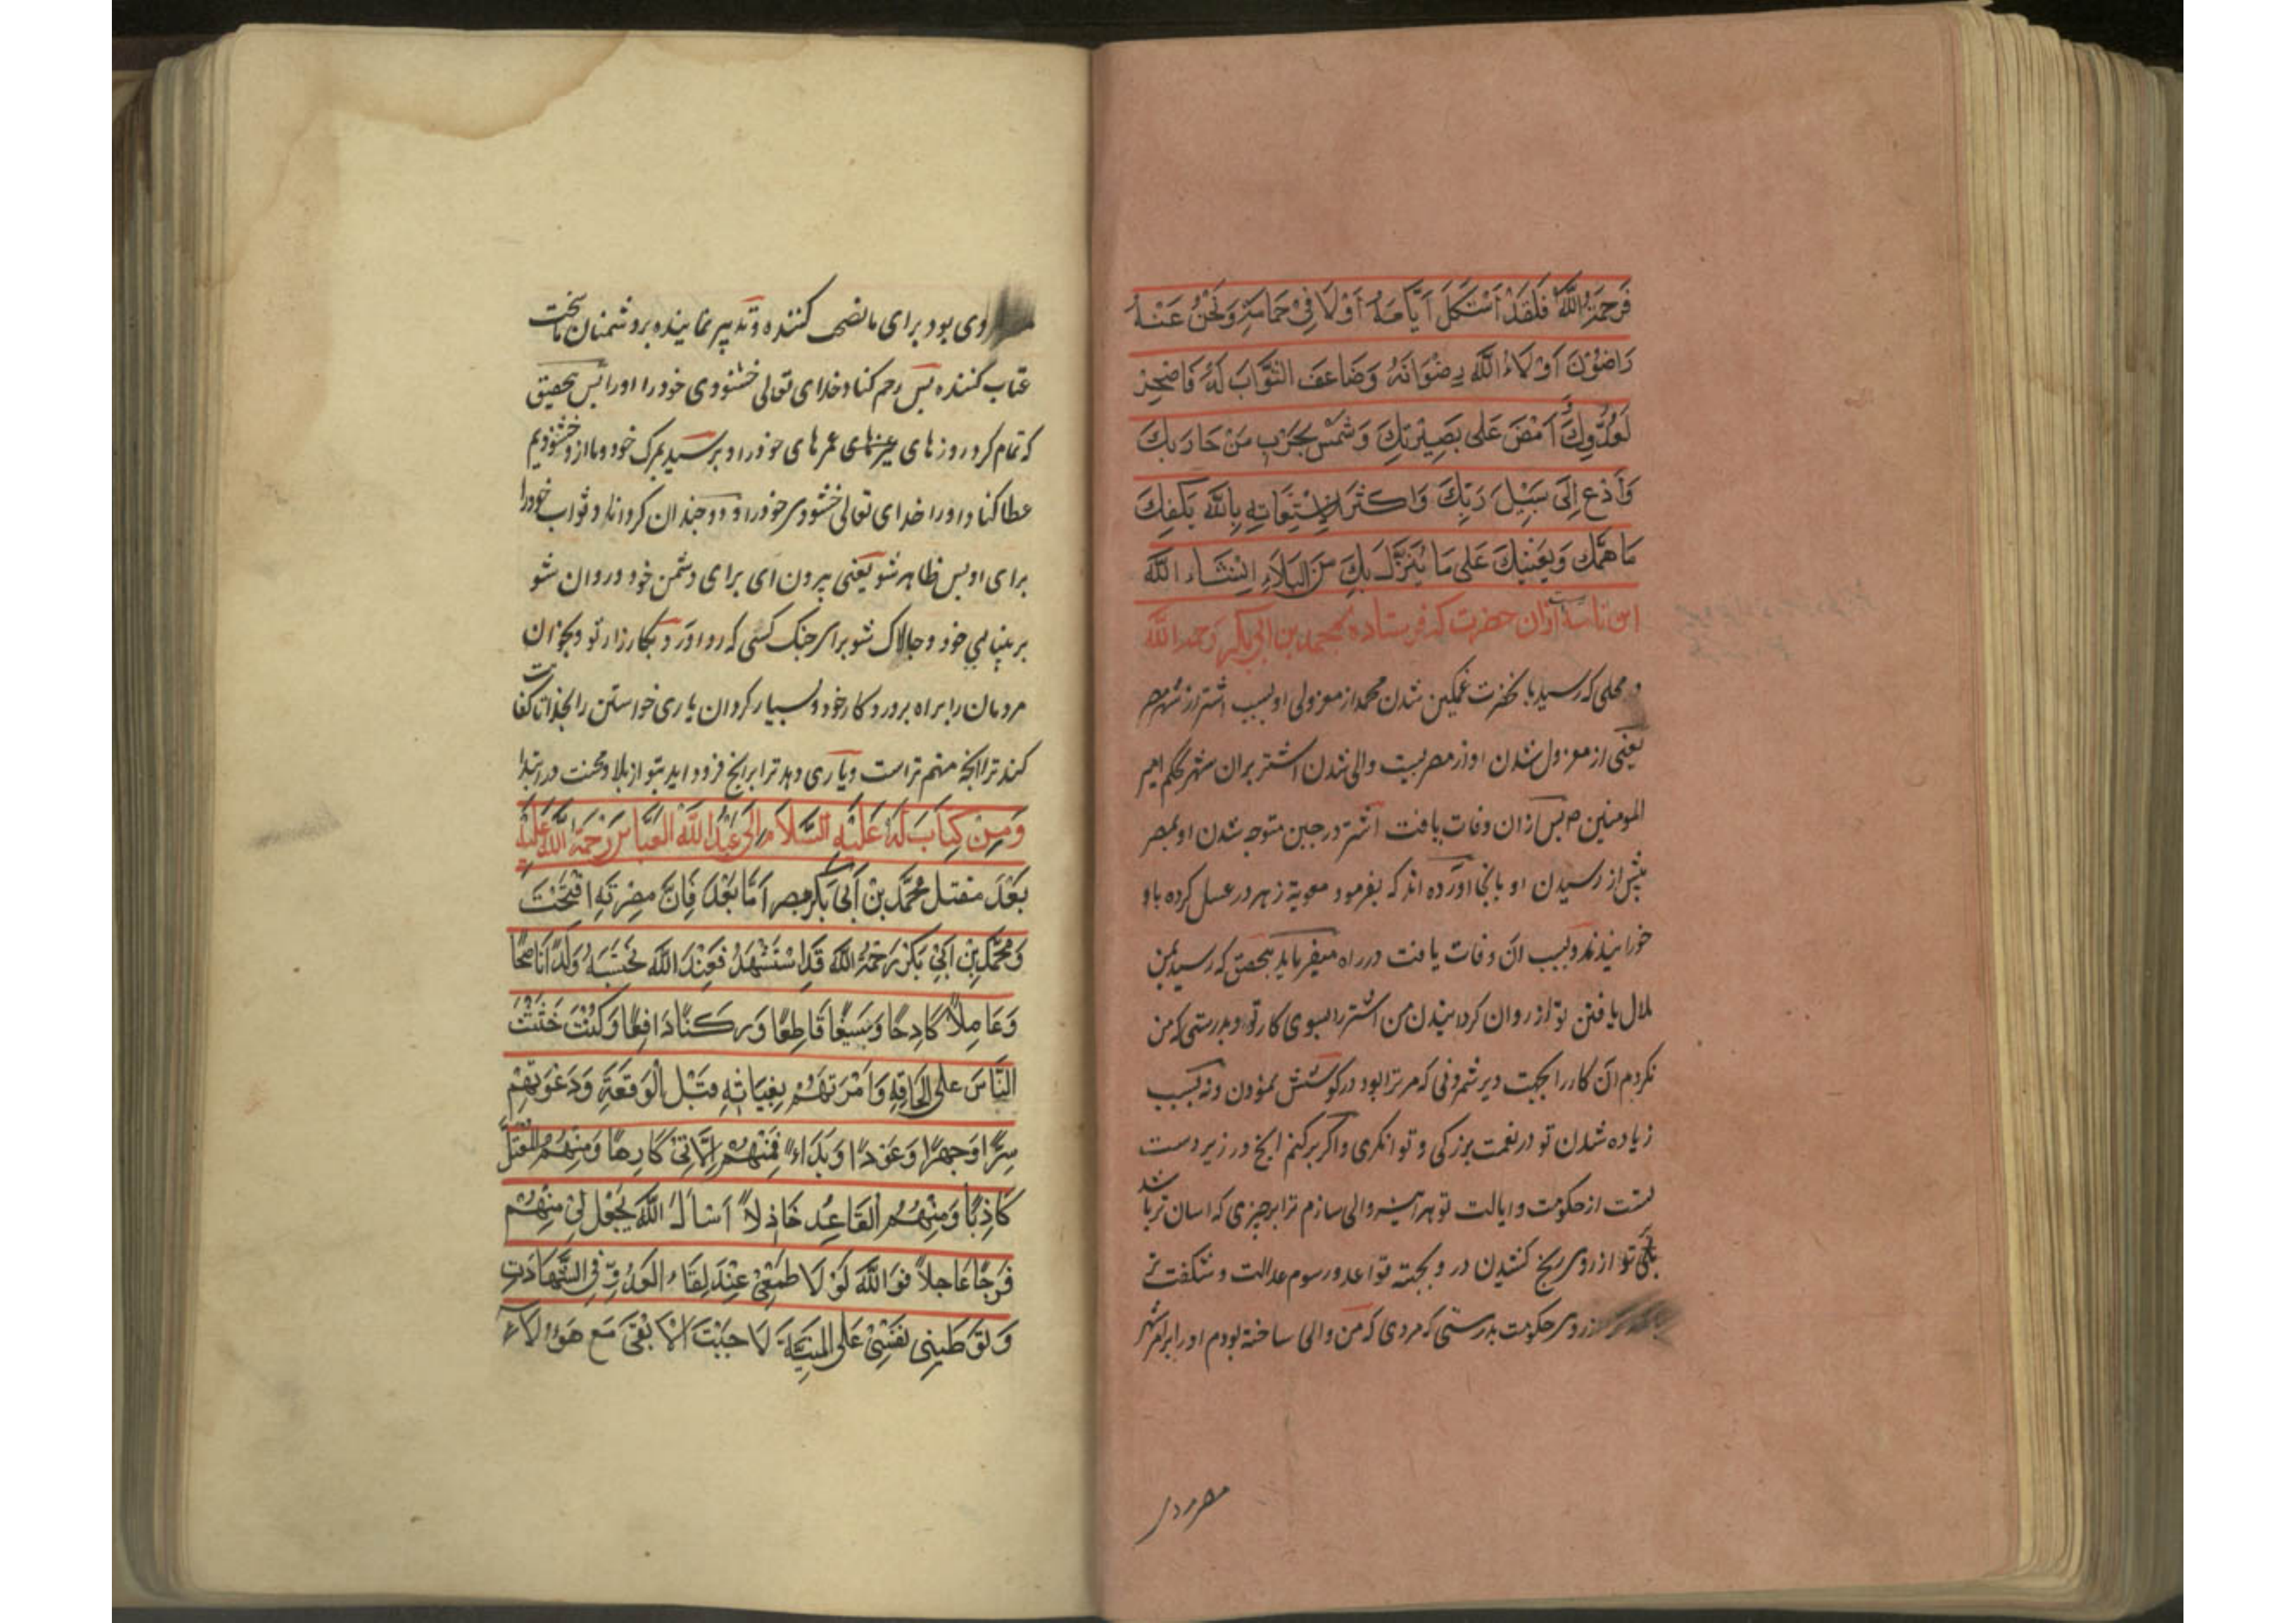 فَرَحِمَهُ اللَّهُ فَلَقَدْ اَسْتَكَلَ اَيَّامَهُ اَوْ لَا فِيْ حَمَامَهِ وَنَحْنُ عَنْهُ
رَاضُوْنَ اَوْلَاءُ اللَّهُ رِضْوَانَهُ وَضَاعَفَ الثَّوَابَ لَهُ فَاصْحِرْ
لَعَدُوِّكَ وَ اَمْضِ عَلى بَصِيْرَتِكَ وَشَمِّسْ بِحَرْبِ مَنْ حَارَبَكَ
وَاَدْعِ اِلَى سَبِيْلَ رَبِّكَ وَاكْثَرِ الْاِسْتِعَانِهِ بِاللَّهِ يَكْفِكَ
مَا هَمَّكَ وَيُعِنْكَ عَلى مَا يُنَزِّلَ بِكَ مِنَ الْبَلَاءِ اِنْشَاءَ اللَّه
این نامه ایست ازان حضرت که فرستاده بمحمد بن ابی بکر رحمه الله
در محلی که رسید با نحضرت غمکین شدن محمد از معزولی او بسبب اشتر از شهر مصر
یعنی از معزول شدن او از مصر بسبب والی شدن اشتر بران شهر بحکم امیر
المومنین ص پس ازان وفات یافت اشتر در حین متوجه شدن او بمصر
پیش از رسیدن او بانجا آورده اند که بفرمود معویة زهر در عسل کرده باو
خورانیدند و بسبب ان وفات یافت در راه میفرماید بتحقیق که رسید بمن
ملال یافتن تو از روان کردانیدن من اشتر را بسوی کار تو و بدرستی که من
نکردم آن کار را بجهت دیر شمردنی که مر ترا بود در کوشش نمودن و نه بسبب
زیاده شدن تو در نعمت بزرکی و توانکری و اکر برکنم انچ در زیر دست
تست از حکومت و ایالت تو هر اینه والی سازم ترا بر چیزی که اسان تر باشد
بر تو از روی رنج کشیدن در و بجسته قواعد و رسوم عدالت و شکفت تر
از روی حکومت بدرستی که مردی که من والی ساخته بودم او را بر امر شهر
مصر مردی
روی بود برای ما نصیحت کننده و تدبیر نماینده و بر دشمنان ما سخت
عتاب کننده پس رحم کناد خدای تعالی خشنودی خود را او را پس بتحقیق
که تمام کرد روزهای عمرهای خود را و برسید بمرک خود و ما از و خشنودیم
عطا کناد او را خدای تعالی خشنودی خود را و دو چندان کرداناد ثواب خود را
برای او پس ظاهر شو یعنی بیرون ای برای دشمن خود و روان شو
بر بینایی خود و چالاک شو برای جنک کسی که رو اورد بکارزار تو و بخوان
مردمان را براه پروردکار خود و بسیار کردان یاری خواستن را بخدا تا کفایت
کند ترا انچه مهم تراست و یاری دهد ترا بر انچ فرود اید بتو از بلا و محنت در ابتدا
وَمِنْ كِتَابَ لَهُ عَلَيْهِ السَّلَامِ اِلى عَبْدُ اللَّهِ الْعَبَّاسِ رَحْمَةُ اللَّهُ عَلَيْهِ
بَعْدَ مَقْتَل مُحَمَّدِ بْنِ اَبى بَكْرِ بمصر اَمَّا بَعْدَ فَاِنَّ مِصْرَ قَدِ افْتُتِحَتْ
وَ مُحَمَّدِ بْنِ اَبِيْ بَكْرٍ رَحِمَهُ اللَّه قَدِ اسْتُشْهِدَ فَعِنْدَ اللَّهِ نَحْتَسِبَهُ وَلَدًا نَاصِحًا
وَعَامِلًا كَادِحًا وَسَيْفًا قَاطِعًا وَرَكْنًا دَافِعًا وَكُنْتُ حَثَثْتُ
النَّاسَ عَلى لَحَاقِهِ وَاَمَرْتَهُمْ بِغِيَاثِهِ قَبْل الْوَقْعَةِ وَدَعَوْتَهُمْ
سِرًّا وَجَهْرًا وَعَوْدًا وَبَدَاءً فَمِنْهُمْ اِلْآتِيْ كَارِهًا وَمِنْهُمُ الْمُعْتَلُّ
كَاذِبًا وَمِنْهُمُ القَاعِدُ خَاذِلًا اَسْأَلُ اللَّهَ يَجْعَلَ لِيْ مِنْهُمْ
فَرَجًا عَاجِلًا فَوَاللَّهِ لَوْ لَا طَمَعِيْ عِنْدَ لِقَاءِ الْعَدُوِّ فِي الشَّهَادَتِ
وَتَوَطِينِى نَفْسِيْ عَلى الْمَنِيَّةِ لَاحْبَبْتَ اَلَّا اَبْقى مَعَ هَؤُلَاءِ